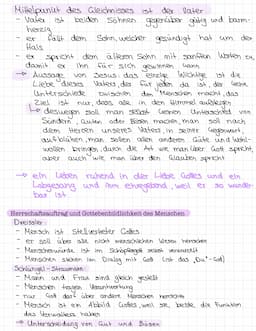 Mittelpunkt des Gleichnisses ist der Vater
- Vater ist beiden Söhnen gegenüber gütig und barm-
herzig
- er fällt dem Sohn, welcher gesündigt hat um den
Hals
- er spricht dem älteren Sohn mit sanften Worten zu,
damit er ihn für sich gewinnen kann
→ Aussage von Jesus: das einzig Wichtige ist die
Liebe dieses Vaters, der für jeden da ist, der keine
Unterschiede zwischen den Menschen macht, das
Ziel ist nur, dass alle in den Himmel aufsteigen
→ deswegen soll man keinen Unterschied von
Sündern, Guten oder Bösen machen, man soll nach
dem Herzen unseres Vaters, in seiner Gegenwart,
aufblühen, man sollen allen anderen Güte und Wohl-
wollen bringen, durch die Art wie man über Gott spricht,
aber auch wie man über den Glauben spricht
→ ein Leben ruhend in der Liebe Gottes und ein
Lobgesang und ihm ehregebend, weil er so wunder-
bar ist
Herrschaftsauftrag und Gottebenbildlichkeit des Menschen
Dressler:
- Mensch ist Stellvertreter Gottes
- er soll über alle nicht menschlichen Wesen herrschen
- Menschenwürde ist im Schöpfungs verankert
- Menschen stehen im Dialog mit Gott (ist das „Du" Gott)
Schüngel-Straumann:
- Mann und Frau sind gleich gestellt
- Menschen tragen Verantwortung
- nur Gott darf über andere Menschen herrschen
- Mensch ist ein Abbild Gottes weil sie beide die Funktion
des Verwalters haben
→ Unterscheidung von Gut und Böse